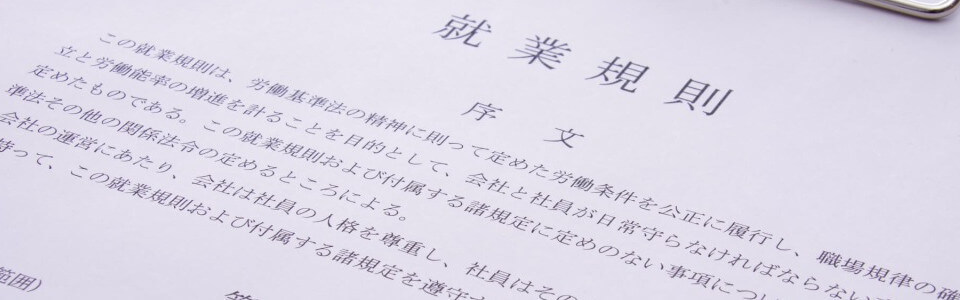 就業規則
序文
この就業規則は、労働基準法の精神に則って定めた労働条件を公正に履行し、職場規律の確
立と労働能率の増進を計ることを目的として、会社と社員が日常守らなければならない
定めたものである。この就業規則および付属する諸規定に定めのない事項につい
準法その他の関係法令の定めるところによる。
会社の運営にあたり、会社は社員の人格を尊重し、社員はその
持って、この就業規則および付属する諸規定を遵守す
範囲)